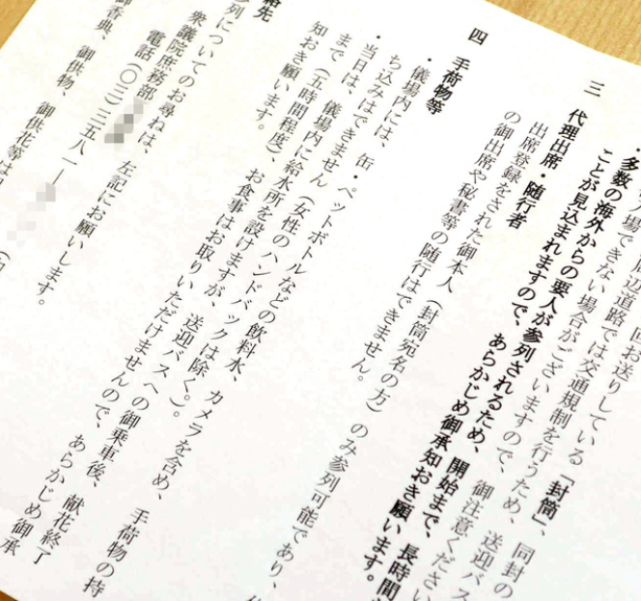 回お送りしている「封筒」、同封の
周辺道路では交通規制を行うため、送迎バス
入場できない場合がございますので、御注意ください
・多数の海外からの要人が参列されるため、開始まで、長時間
ことが見込まれますので、あらかじめ御承知おき願います。
三 代理出席・随行者
出席登録をされた御本人(封筒宛名の方)のみ参列可能であり、
の御出席や秘書等の随行はできません。
四 手荷物等
・儀場内には、缶・ペットボトルなどの飲料水、カメラを含め、手荷物の持
ち込みはできません(女性のハンドバックは除く。)。
・当日は、儀場内に給水所を設けますが、送迎バスへの御乗車後、献花終了
まで(五時間程度)、お食事はお取りいただけませんので、あらかじめ御承
知おき願います。
絡先
参列についてのお尋ねは、左記にお願いします。
衆議院庶務部
電話(〇三)三五八一―
御香典、御供物、御供花等は